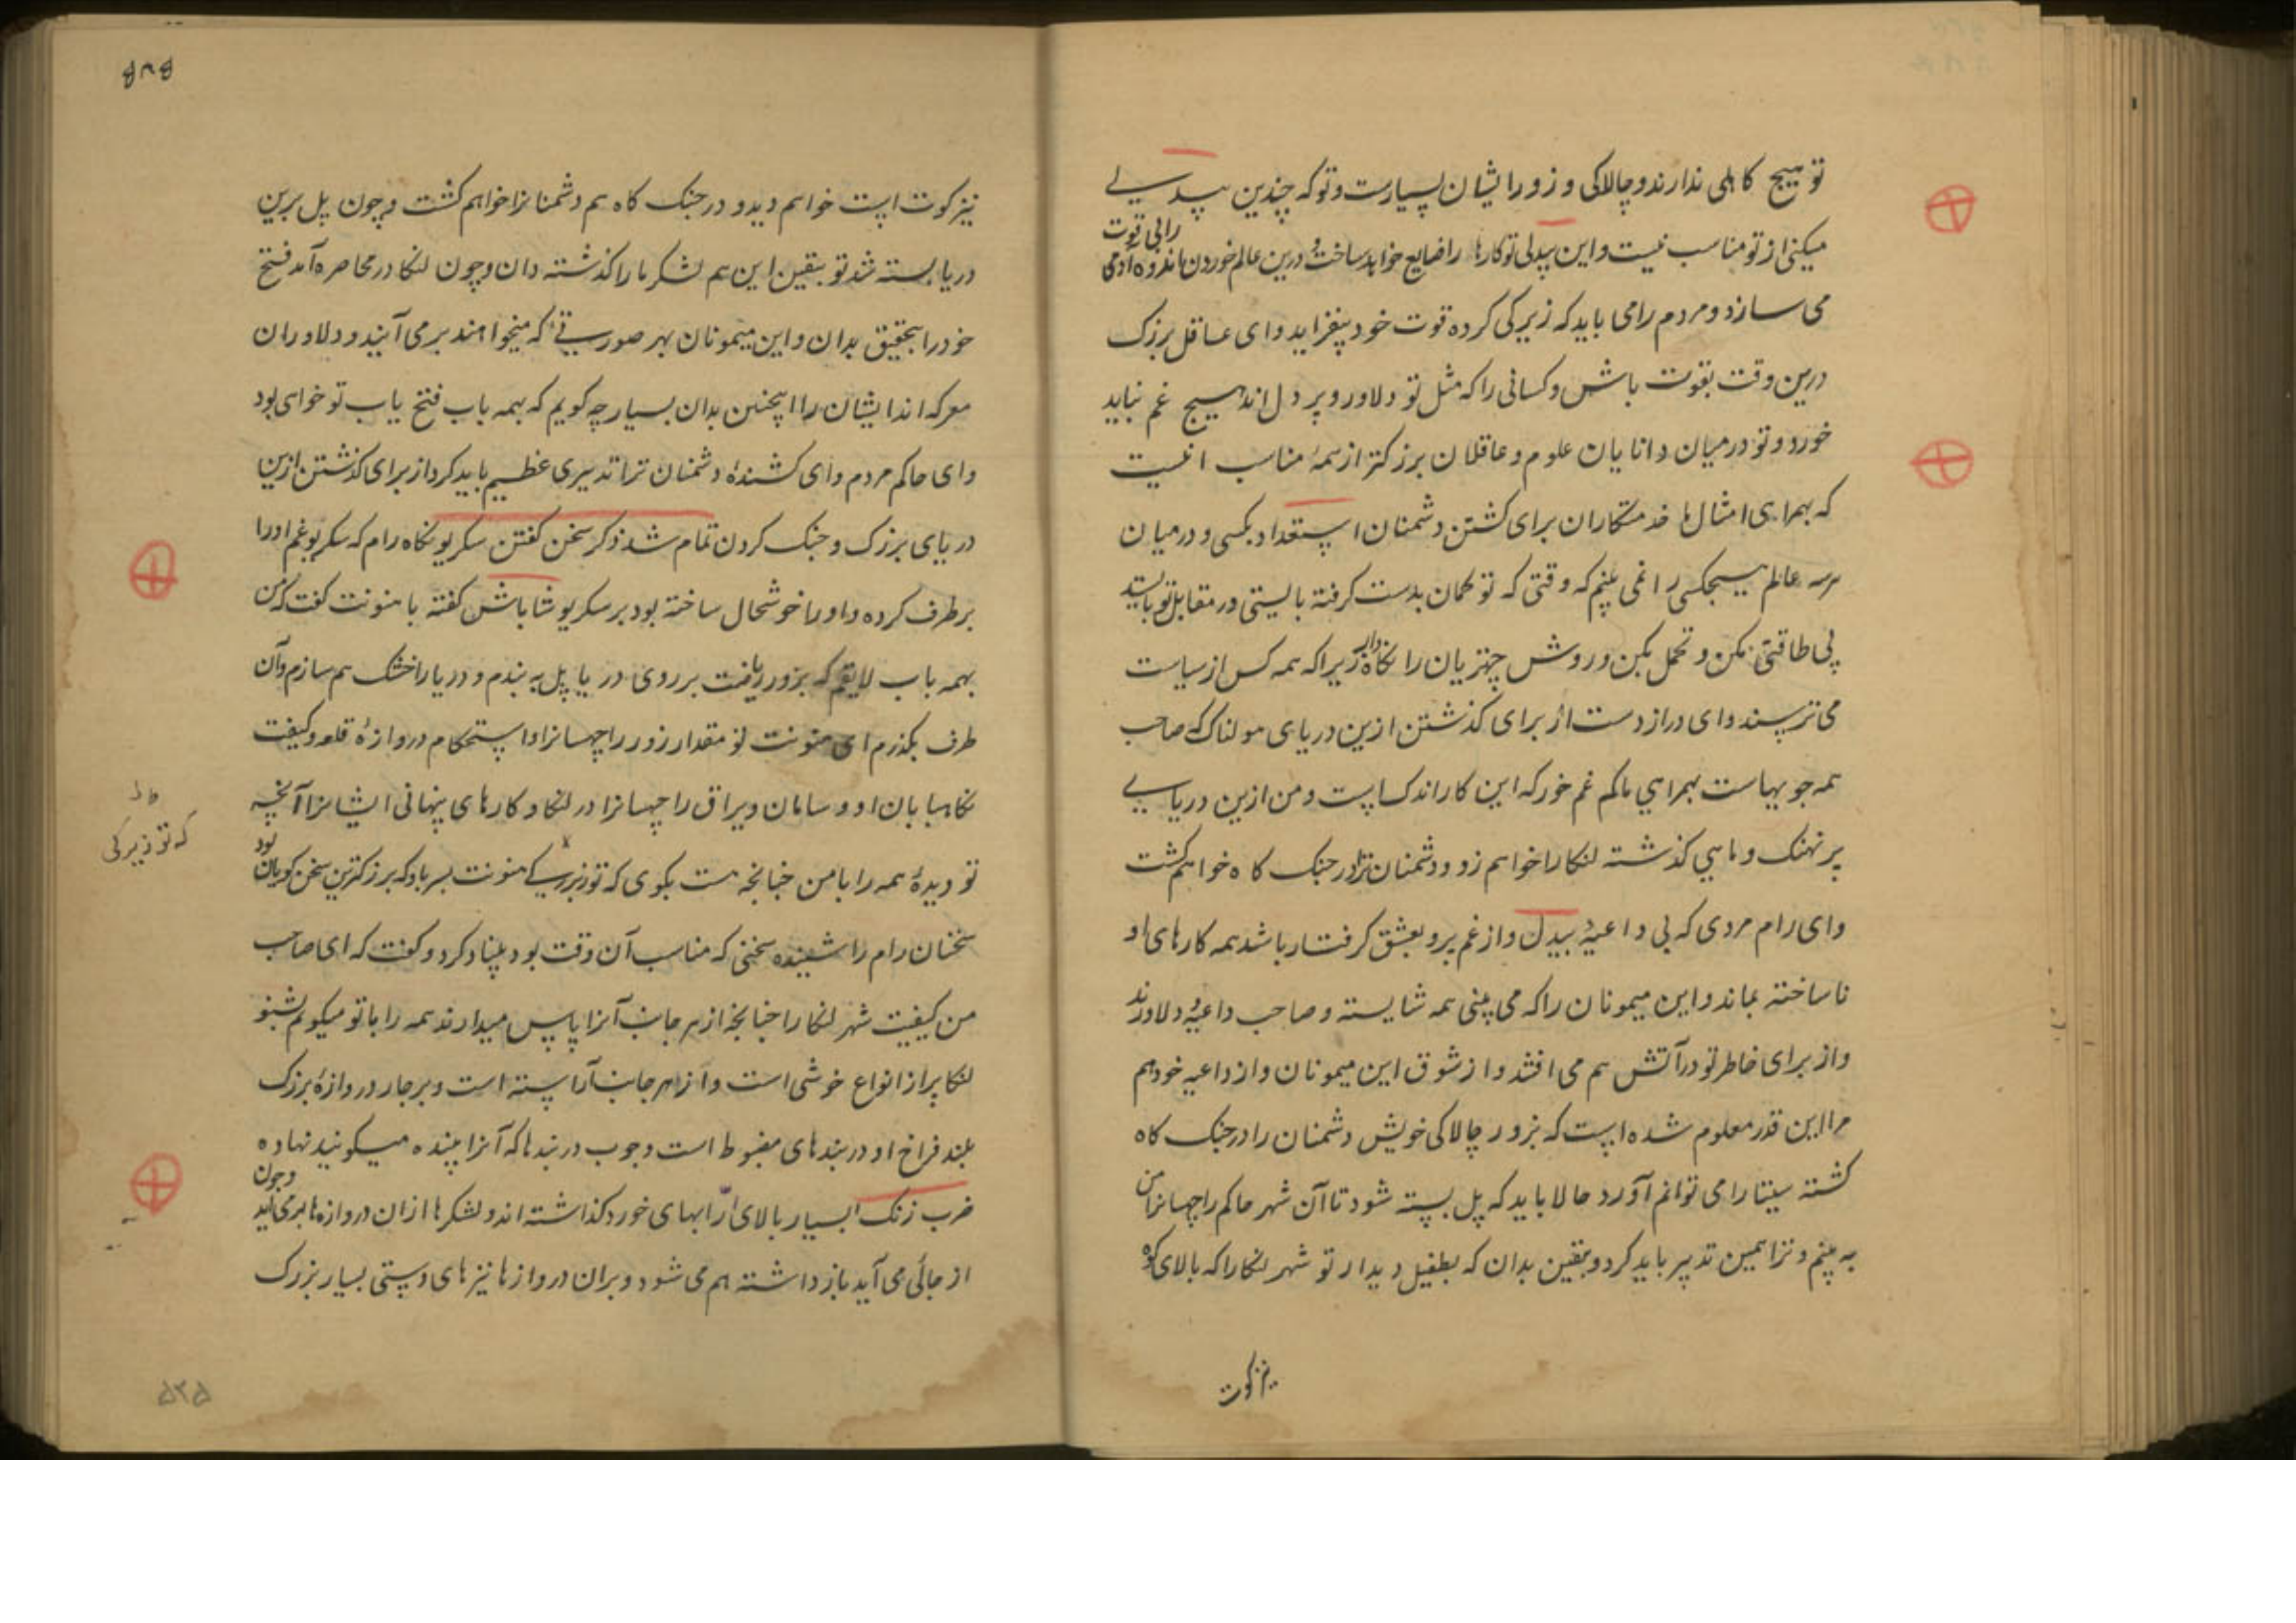 تو هیچ کاهلی ندارند و چالاکی و زور ایشان بسیارست و تو که چندین بیدلی
میکنی از تو مناسب نیست و این بیدلی تو کارها را ضایع خواهد ساخت و درین عالم خوردن اندوه آدمی را بی قوت
می سازد و مردم را می باید که زیرکی کرده قوت خود بیفزاید و ای عاقل بزرک
درین وقت بقوت باش و کسانی را که مثل تو دلاور و پر دل اند هیچ غم نباید
خورد و تو در میان دانایان علوم و عاقلان بزرکتر از همهٔ مناسب انیست
که بهمراهی امثال ما خدمتکاران برای کشتن دشمنان استعداد بکنی و درمیان
هر سه عالم هیچکسی را نمی بینم که وقتی که تو کمان بدست کرفته بایستی در مقابل تو بایستد
بی طاقتی مکن و تحمل بکن و روش چهتریان را نکاه دار زیرا که همه کس از سیاست
می ترسند و ای دراز دست از برای کذشتن ازین دریای هولناک که صاحب
همه جویهاست بهمراهی ما کم غم خور که این کار اندک است و من ازین دریایی
پر نهنک و ماهی کذشته لنکا را خواهم زد و دشمنان ترا در جنک کاه خواهم کشت
و ای رام مردی که بی داعیهٔ بیدل و از غم پر و بعشق کرفتار باشد همه کارهای او
ناساخته بماند و این میمونان را که می بینی همه شایسته و صاحب داعیهٔ و دلاورند
و از برای خاطر تو در آتش هم می افتند و از شوق این میمونان و از داعیه خود هم
مرا این قدر معلوم شده است که بزور چالاکی خویش دشمنان را در جنک کاه
کشته سیتا را می توانم آورد حالا باید که پل بسته شود تا آن شهر حاکم راچهسانرا من
به بینم و ترا همین تدبیر باید کرد و یقین بدان که بطفیل دیدار تو شهر لنکا را که بالای کوه
نیز کوت
۵۳۵
نیز کوت است خواهم دید و در جنک کاه هم دشمنانرا خواهم کشت و چون پل برین
دریا بسته شد تو یقین این هم لشکر ما را کذشته دان و چون لنکا در محاصره آمد فتح
خود را بتحقیق بدان و این میمونان بهر صورتی که میخواهند بر می آیند و دلاوران
معرکه اند ایشان را اینچنین بدان بسیار چه کویم که بهمه باب فتح یاب تو خواهی بود
و ای حاکم مردم و ای کشندهٔ دشمنان ترا تدبیری عظیم باید کرد از برای کذشتن ازین
دریای بزرک و جنک کردن تمام شد ذکر سخن کفتن سکریو نکاه رام که سکریو غم او را
برطرف کرده و او را خوشحال ساخته بود بر سکریو شاباش کفته با هنونت کفت که من
بهمه باب لایقم که بزور ریاضت بر روی دریا پل به بندم و دریا را خشک هم سازم و آن
طرف بکذرم ای هنونت تو مقدار زور راچهسانرا و استحکام دروازهٔ قلعه و کیفیت
نکاهبابان او و سامان و یراق راچهسانرا در لنکا و کارهای پنهانی ایشانرا آنچه
تو دیدهٔ همه را با من چنانچه هست بکوی که تو زیرکی هنونت پسر باد که بزرکترین سخن کویان بود
سخنان رام را شنیده سخنی که مناسب آن وقت بود بنیاد کرد و کفت که ای صاحب
من کیفیت شهر لنکا را چنانچه از هر جانب آنرا پاس میدارند همه را با تو میکویم بشنو
لنکا پر از انواع خوشی است و از هر جانب آراسته است و بر چار دروازهٔ بزرک
بلند فراخ او دربندهای مضبوط است و چوب دربندها که آنرا بینده میکویند نهاده
ضرب زنک بسیار بالای ارابهای خورد کذاشته اند و لشکرها ازان دروازه ها بر می آید و چون
از جائی می آید باز داشته هم می شود و بران دروازها نیزهای دستی بسیار بزرک
که تو زیرکی
۵۳۵